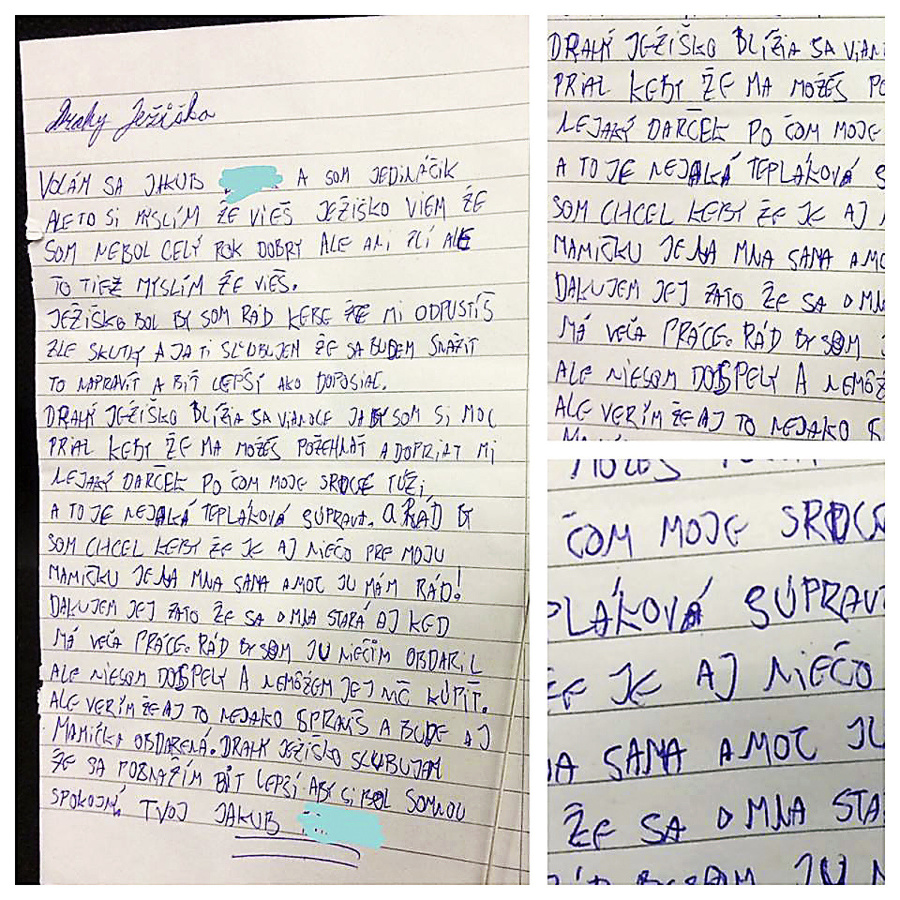 Drahy Ježiško
VOLÁM SA JAKUB A SOM JEDINÁČIK
ALE TO SI MYSLÍM ŽE VIEŠ JEŽIŠKO VIEM ŽE
SOM NEBOL CELÝ ROK DOBRY ALE ANI ZLÍ ALE
TO TIEŽ MYSLÍM ŽE VIEŠ.
JEŽIŠKO BOL BY SOM RÁD KEBE ŽE MI ODPUSTÍŠ
ZLE SKUTKY A JA TI SĽUBUJEM ŽE SA BUDEM SNAŽIT
TO NAPRAVIŤ A BIŤ LEPŠÍ AKO DOPOSIAĽ.
DRAHÝ JEŽIŠKO BLÍŽIA SA VIANOCE JA BY SOM SI MOC
PRIAL KEBY ŽE MA MOŽEŠ POŽEHNAŤ A DOPRIAT MI
NEJAKÝ DARČEK PO ČOM MOJE SRDCE TÚŽI
A TO JE NEJAKÁ TEPLÁKOVÁ SÚPRAVA. A RÁD BY
SOM CHCEL KEBY ŽE JE AJ NIEČO PRE MOJU
MAMIČKU JE NA MNA SAMA A MOC JU MÁM RÁD!
DAKUJEM JEJ ZATO ŽE SA O MNA STARÁ AJ KED
MÁ VEĽA PRÁCE. RÁD BY SOM JU NIEČIM OBDARIL
ALE NIESOM DOSPELY A NEMÔŽEM JEJ NIČ KÚPIŤ.
ALE VERÍM ŽE AJ TO NEJAKO SPRAVÍŠ A BUDE AJ
MAMIČKA OBDARENÁ. DRAHÝ JEŽIŠKO SĽUBUJEM
ŽE SA POSNAŽÍM BÝŤ LEPŠÍ ABY SI BOL SOMNOU
SPOKOJNÝ TVOJ JAKUB
DRAHÝ JEŽIŠKO BLÍŽIA SA VIAN
PRIAL KEBY ŽE MA MOŽEŠ PO
NEJAKÝ DARČEK PO ČOM MOJE
A TO JE NEJAKÁ TEPLÁKOVÁ S
SOM CHCEL KEBY ŽE JE AJ
MAMIČKU JE NA MNA SAMA A MO
DAKUJEM JEJ ZATO ŽE SA O MNA
MÁ VEĽA PRÁCE. RÁD BY SOM
ALE NIESOM DOSPELY A NEMÔŽ
ALE VERÍM ŽE AJ TO NEJAKO S
ČOM MOJE SRDCE
PLÁKOVÁ SÚPRAV
ŽE JE AJ NIEČO
NA SAMA A MOC JU
ŽE SA O MNA STA